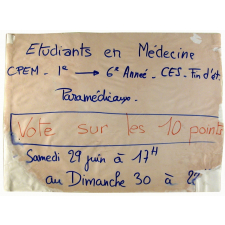 Etudiants en Médecine
CPEM - 1e → 6e Année - CES - Fin d'ét.
Paramédicaux.
Vote sur les 10 points
Samedi 29 juin à 17H
au Dimanche 30 à 22